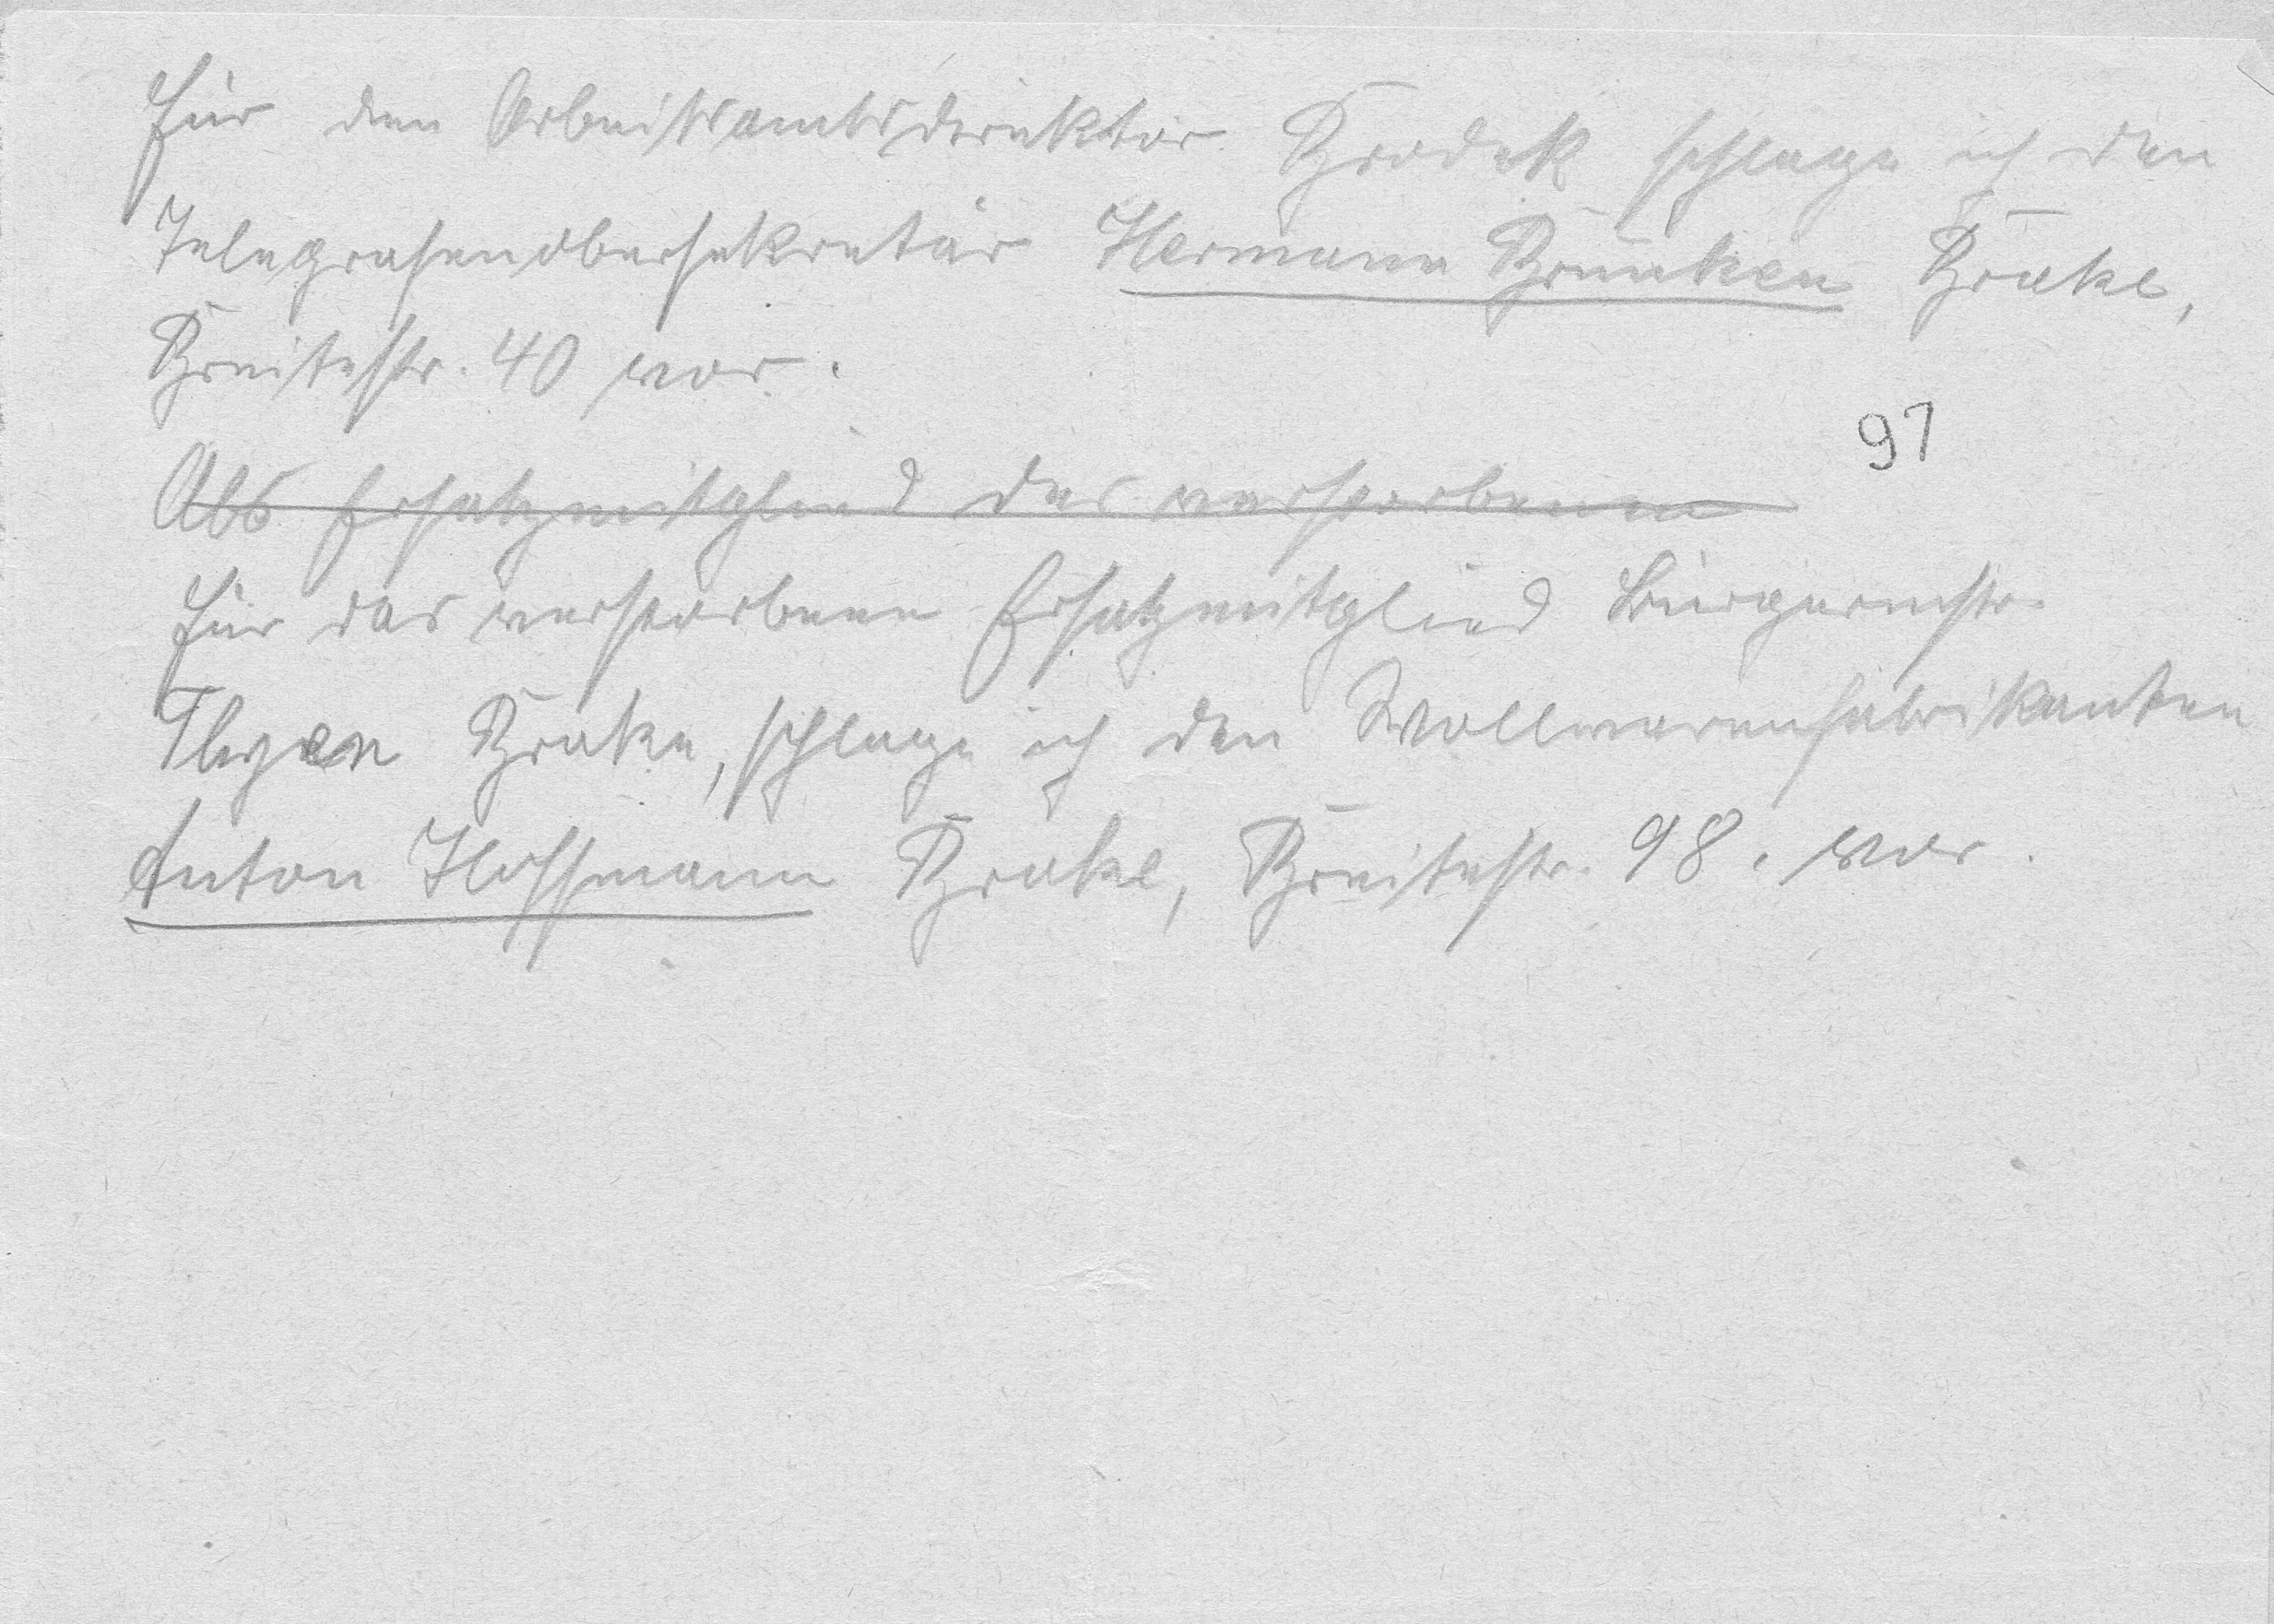 Für den Arbeitsamtsdirektor Brodek schlage ich den
Telegrafenobersekretär Hermann Brunken Brake,
Breitestr. 40 vor.
97
Als Ersatzmitglied des verstorbenen
Für das verstorbene Ersatzmitglied Bürgermstr.
Thyen Brake, schlage ich den Wollwarenfabrikanten
Anton Hoffmann Brake, Breitestr. 98. vor.